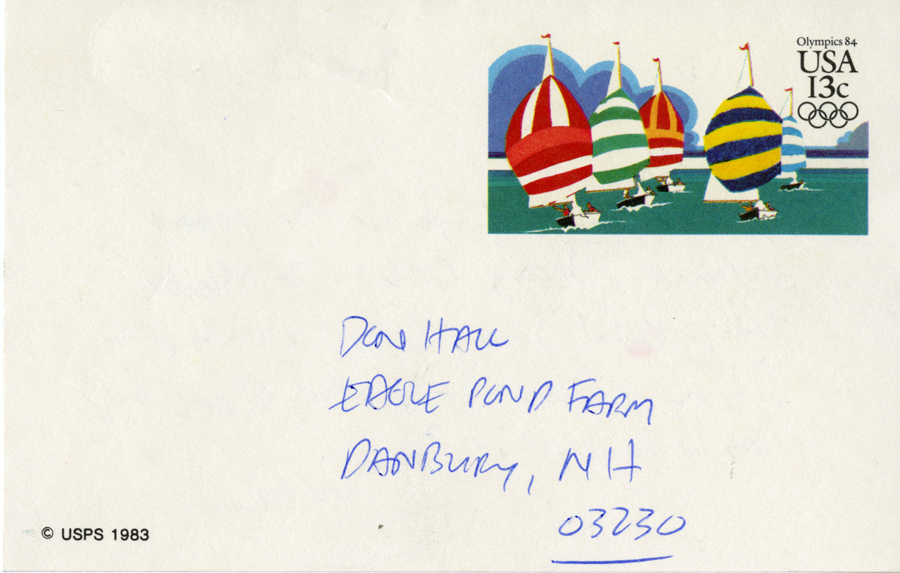 Olympics 84
USA
13c
Don Hall
Eagle Pond Farm
Danbury, NH
03230
© USPS 1983